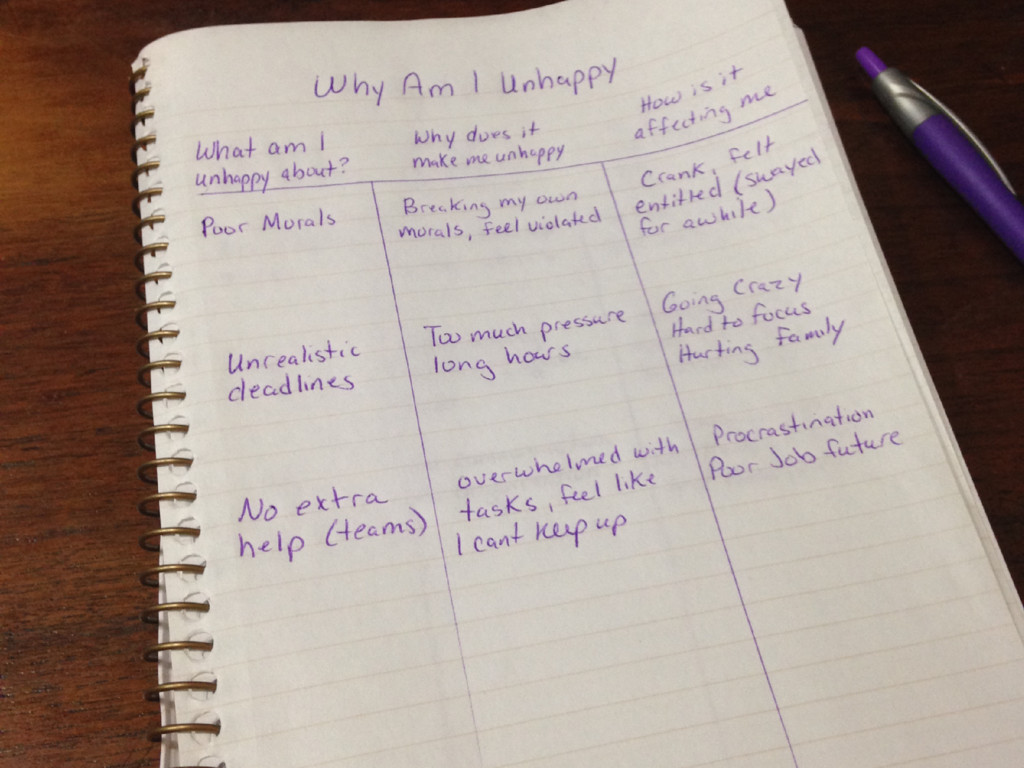 Why Am I Unhappy
What am I
unhappy about?
Why does it
make me unhappy
How is it
affecting me
Poor Morals
Breaking my own
morals, feel violated
Crank, felt
entitled (swayed
for awhile)
Unrealistic
deadlines
Too much pressure
long hours
Going Crazy
Hard to focus
Hurting family
No extra
help (teams)
overwhelmed with
tasks, feel like
I cant keep up
Procrastination
Poor Job future